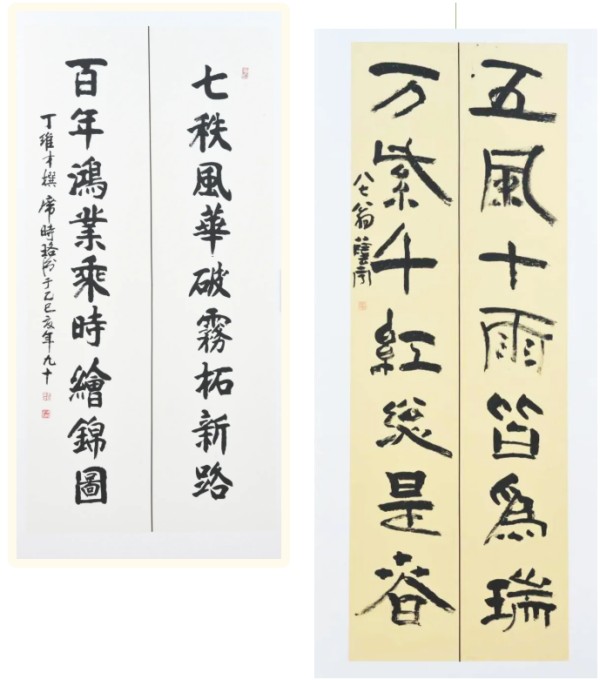 七秩風華破霧拓新路
百年鴻業乘時繪錦圖
丁維才撰 席時珞书于乙巳亥年九十
五風十雨皆為瑞
万紫千紅总是春
八七翁